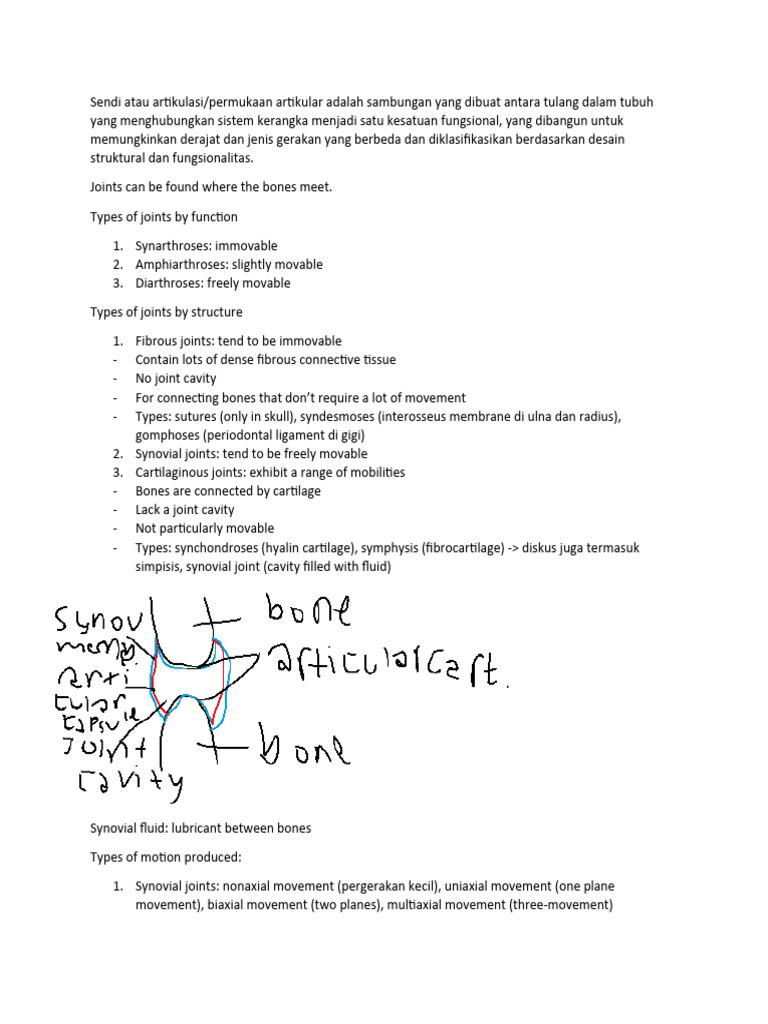 Sendi atau artikulasi/permukaan artikular adalah sambungan yang dibuat antara tulang dalam tubuh
yang menghubungkan sistem kerangka menjadi satu kesatuan fungsional, yang dibangun untuk
memungkinkan derajat dan jenis gerakan yang berbeda dan diklasifikasikan berdasarkan desain
struktural dan fungsionalitas.
Joints can be found where the bones meet.
Types of joints by function
1. Synarthroses: immovable
2. Amphiarthroses: slightly movable
3. Diarthroses: freely movable
Types of joints by structure
1. Fibrous joints: tend to be immovable
- Contain lots of dense fibrous connective tissue
- No joint cavity
- For connecting bones that don’t require a lot of movement
- Types: sutures (only in skull), syndesmoses (interosseus membrane di ulna dan radius),
gomphoses (periodontal ligament di gigi)
2. Synovial joints: tend to be freely movable
3. Cartilaginous joints: exhibit a range of mobilities
- Bones are connected by cartilage
- Lack a joint cavity
- Not particularly movable
- Types: synchondroses (hyalin cartilage), symphysis (fibrocartilage) -> diskus juga termasuk
simpisis, synovial joint (cavity filled with fluid)
synov
bone
articular cart.
arti
cular
capsule
joint
cavity
bone
Synovial fluid: lubricant between bones
Types of motion produced:
1. Synovial joints: nonaxial movement (pergerakan kecil), uniaxial movement (one plane
movement), biaxial movement (two planes), multiaxial movement (three-movement)